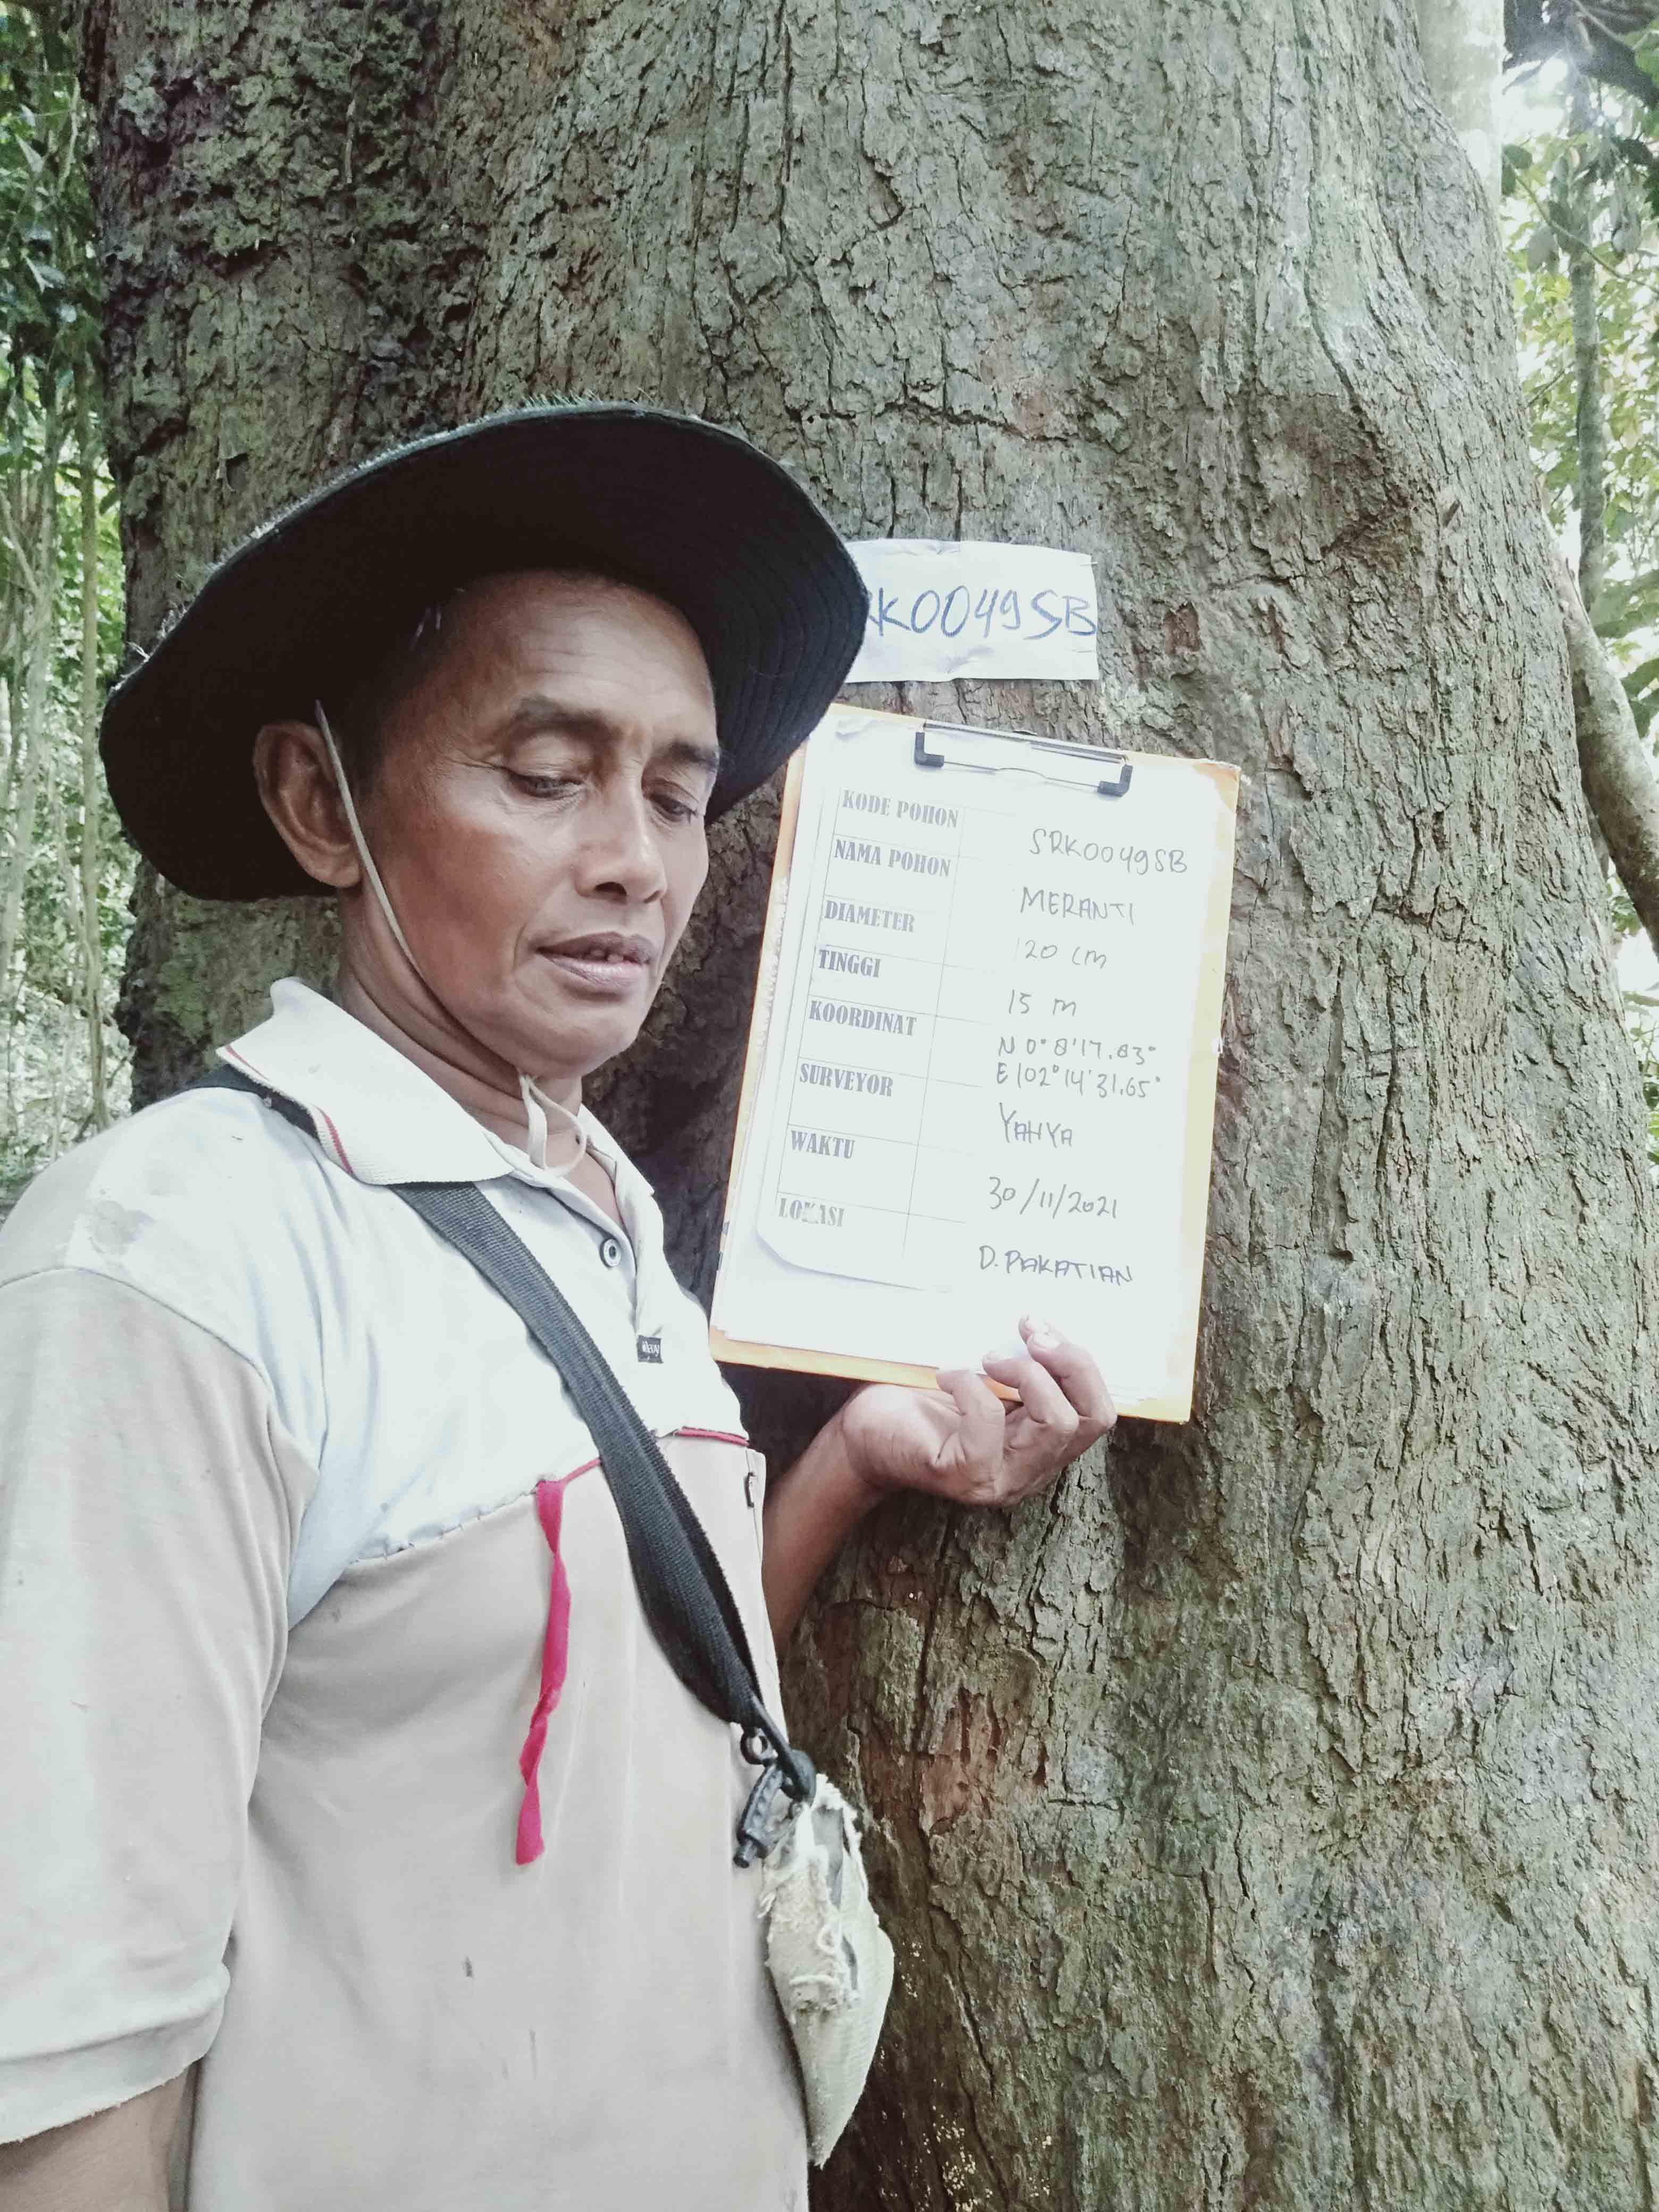 RK0049SB
KODE POHON SRK0049SB
NAMA POHON MERANTI
DIAMETER 120 cm
TINGGI 15 m
KOORDINAT N 0° 8'17.83"
E 102° 14'31.65"
SURVEYOR YAHYA
WAKTU 30/11/2021
LOKASI D. PAKATIAN